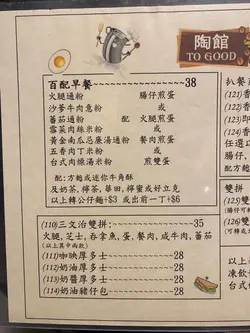 陶館
TO GOOD
百配早餐 38
火腿通粉 腸仔煎蛋
沙爹牛肉意粉 或
蕃茄通粉 配 火腿煎蛋
雪菜肉絲米粉 或
黃金肉瓜忌廉湯通粉 餐肉煎蛋
五香肉丁米粉 或
台式肉燥湯米粉 煎雙蛋
配:方飽或迷你牛角酥
及奶茶,檸茶,華田,檸蜜或好立克
以上轉公仔麵+$3 或出前一丁+$6
(110)三文治雙拼: 35
火腿,芝士,吞拿魚,蛋,餐肉,咸牛肉,蕃茄
(以上其中兩款)
(111)咖映厚多士 28
(112)奶油厚多士 28
(113)奶醬厚多士 28
(114)奶油豬仔包 28
扒餐
(121)香
(122)香
(123)即
(124)香
任選以
腸仔,
配方飽
雙拼
(125)雙
(126)雙
(可轉
以上
凍飲
台式